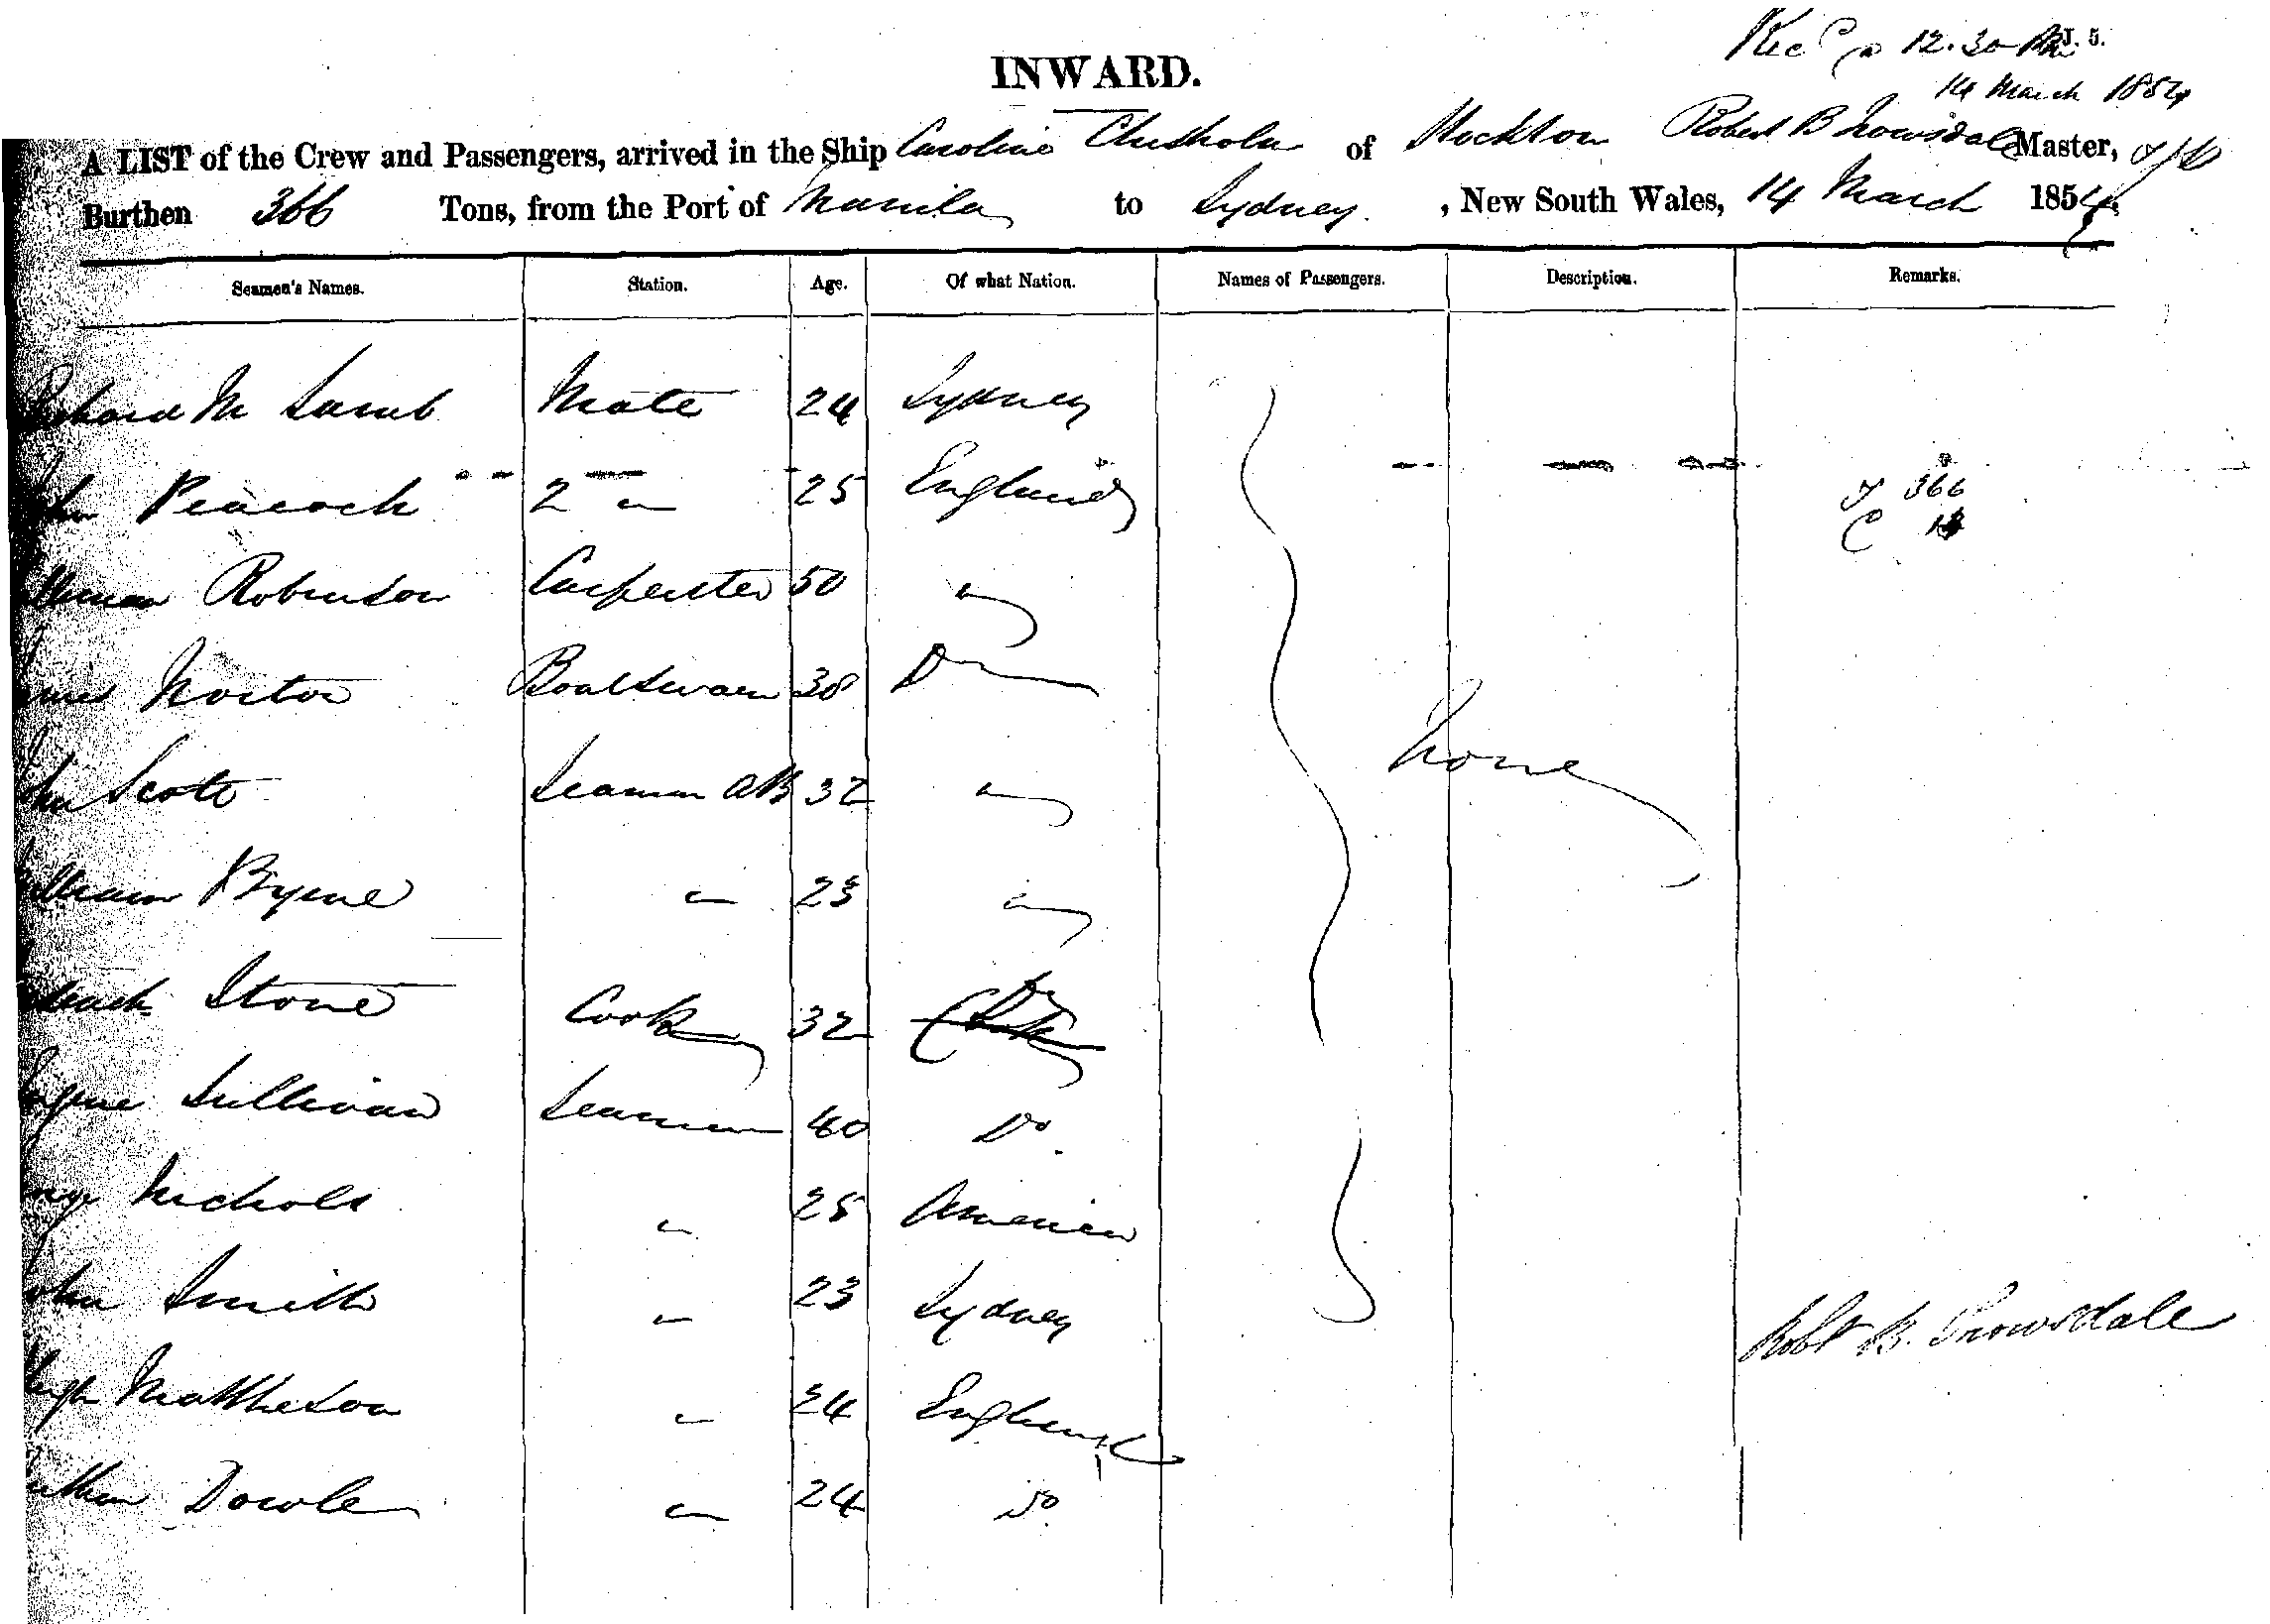 Recd @ 12.30 PM J. 5.
14 March 1854
INWARD.
A LIST of the Crew and Passengers, arrived in the Ship Caroline Chisholm of Stockton Robert B Snowsdale Master,
Burthen 366 Tons, from the Port of Manila to Sydney. , New South Wales, 14 March 1854
Seamen's Names. Station. Age. Of what Nation. Names of Passengers. Description. Remarks.
Richard M Lamb Mate 24 Sydney
John Peacock 2 " 25 England
T 366
C
William Robinson Carpenter 50 "
James Norton Boatswain 38 Do
John Scott Seaman AB 32 "
None
William Byrne " 23 "
Stone Cook 32 Do
Eugene Sullivan Seaman 40 Do.
George Nichols " 25 America
John Smith " 23 Sydney
Robt B. Snowsdale
Hugh Mattheson " 24 England
Dowle " 24 Do